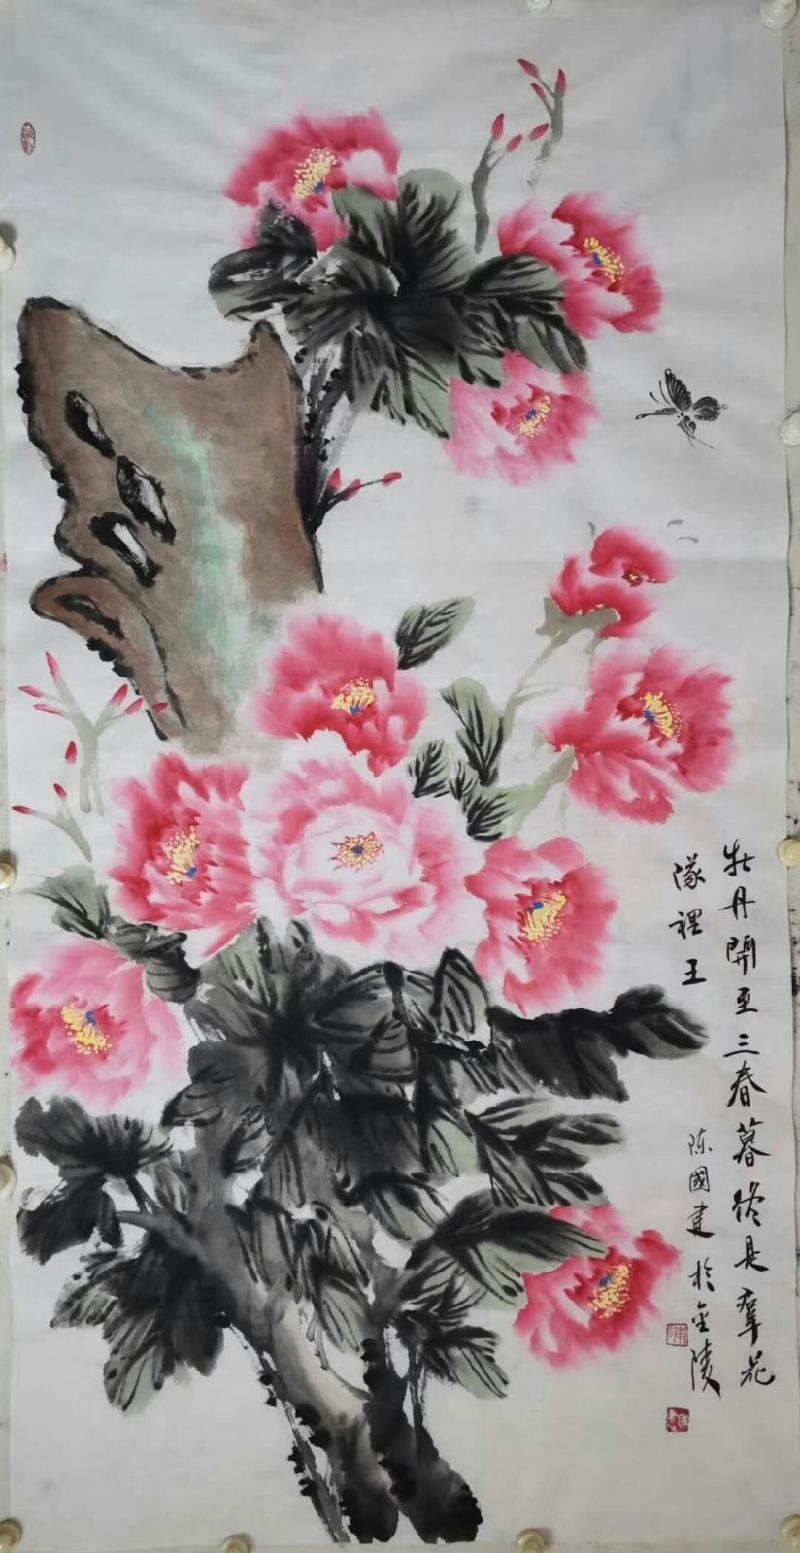 牡丹開至三春暮终是羣花
隊裡王
陈國建於金陵